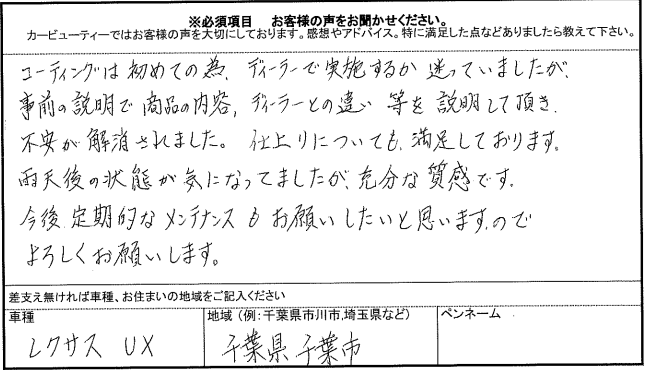 ※必須項目　お客様の声をお聞かせください。
カービューティーではお客様の声を大切にしております。感想やアドバイス。特に満足した点などありましたら教えて下さい。
コーティングは初めての為、ディーラーで実施するか迷っていましたが、
事前の説明で商品の内容，ディーラーとの違い等を説明して頂き、
不安が解消されました。仕上りについても、満足しております。
雨天後の状態が気になってましたが、充分な質感です。
今後、定期的なメンテナンスもお願いしたいと思いますので
よろしくお願いします。
差支え無ければ車種、お住まいの地域をご記入ください
車種
地域（例：千葉県市川市,埼玉県など）
ペンネーム
レクサス UX
千葉県千葉市